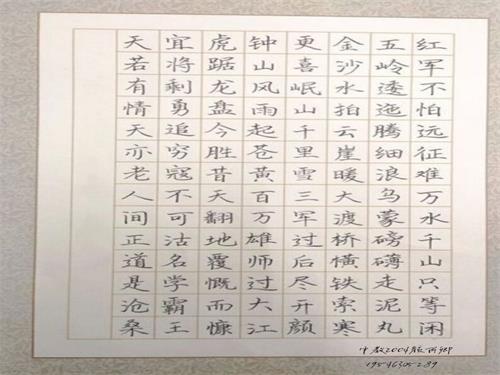 红军不怕远征难万水千山只等闲
五岭逶迤腾细浪乌蒙磅礴走泥丸
金沙水拍云崖暖大渡桥横铁索寒
更喜岷山千里雪三军过后尽开颜
钟山风雨起苍黄百万雄师过大江
虎踞龙盘今胜昔天翻地覆慨而慷
宜将剩勇追穷寇不可沽名学霸王
天若有情天亦老人间正道是沧桑
中教2004